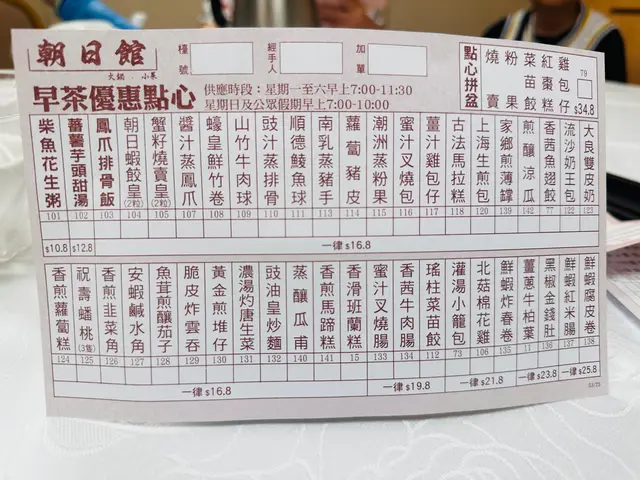 朝日館
火鍋．小菜
檯號
經手人
加單
早茶優惠點心
供應時段：星期一至六早上7:00-11:30
星期日及公眾假期早上7:00-10:00
點心拼盆
燒賣
粉果
菜苗餃
紅棗糕
雞包仔
79
$34.8
柴魚花生粥 101
蕃薯芋頭甜湯 102
鳳爪排骨飯 103
朝日蝦餃皇(2粒) 104
蟹籽燒賣皇(2粒) 105
醬汁蒸鳳爪 107
蠔皇鮮竹卷 108
山竹牛肉球 109
豉汁蒸排骨 110
順德鯪魚球 111
南乳蒸豬手 113
蘿蔔豬皮 114
潮洲蒸粉果 115
蜜汁叉燒包 116
薑汁雞包仔 117
古法馬拉糕 118
上海生煎包 120
家鄉煎薄罉 139
煎釀涼瓜 142
香茜魚翅餃 77
流沙奶王包 122
大良雙皮奶 123
$10.8
$12.8
一律$16.8
香煎蘿蔔糕 124
祝壽蟠桃(3隻) 125
香煎韭菜角 126
安蝦鹹水角 127
魚茸煎釀茄子 128
脆皮炸雲吞 129
黃金煎堆仔 130
濃湯灼唐生菜 131
豉油皇炒麵 132
蒸釀瓜甫 140
香煎馬蹄糕 141
香滑班蘭糕 15
蜜汁叉燒腸 133
香茜牛肉腸 134
瑤柱菜苗餃 112
灌湯小籠包 73
北菇棉花雞 106
鮮蝦炸春卷 135
薑蔥牛柏葉 11
黑椒金錢肚 136
鮮蝦紅米腸 137
鮮蝦腐皮卷 138
一律$16.8
一律$19.8
一律$21.8
一律$23.8
一律$25.8